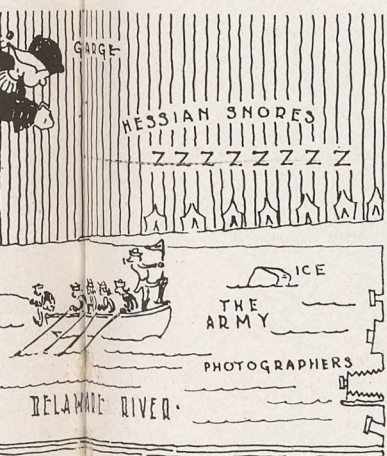 GARGE
HESSIAN SNORES
Z Z Z Z Z Z Z Z
ICE
THE
ARMY
PHOTOGRAPHERS
DELAWARE RIVER.